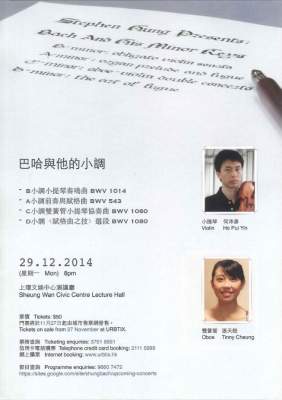 Stephen Hung Presents:
Bach And His Minor Keys
B-minor: obligato violin sonata
A-minor: organ prelude and fugue
C-minor: oboe-violin double concerto
D-minor: the art of fugue
巴哈與他的小調
- B小調小提琴奏鳴曲 BWV 1014
- A小調前奏與賦格曲 BWV 543
- C小調雙簧管小提琴協奏曲 BWV 1060
- D小調〈賦格曲之技〉選段 BWV 1080
小提琴 何沛彥
Violin Ho Pui Yin
29.12.2014
(星期一 Mon) 8pm
上環文娛中心演講廳
Sheung Wan Civic Centre Lecture Hall
票價 Tickets: $50
門票將於11月27日起在城市售票網發售。
Tickets on sale from 27 November at URBTIX.
票務查詢 Ticketing enquiries: 3761 6661
信用卡電話購票 Telephone credit card booking: 2111 5999
網上購票 Internet booking: www.urbtix.hk
節目查詢 Programme enquiries: 9660 7472
https://sites.google.com/site/shungbach/upcoming-concerts
雙簧管 張天粵
Oboe Tinny Cheung